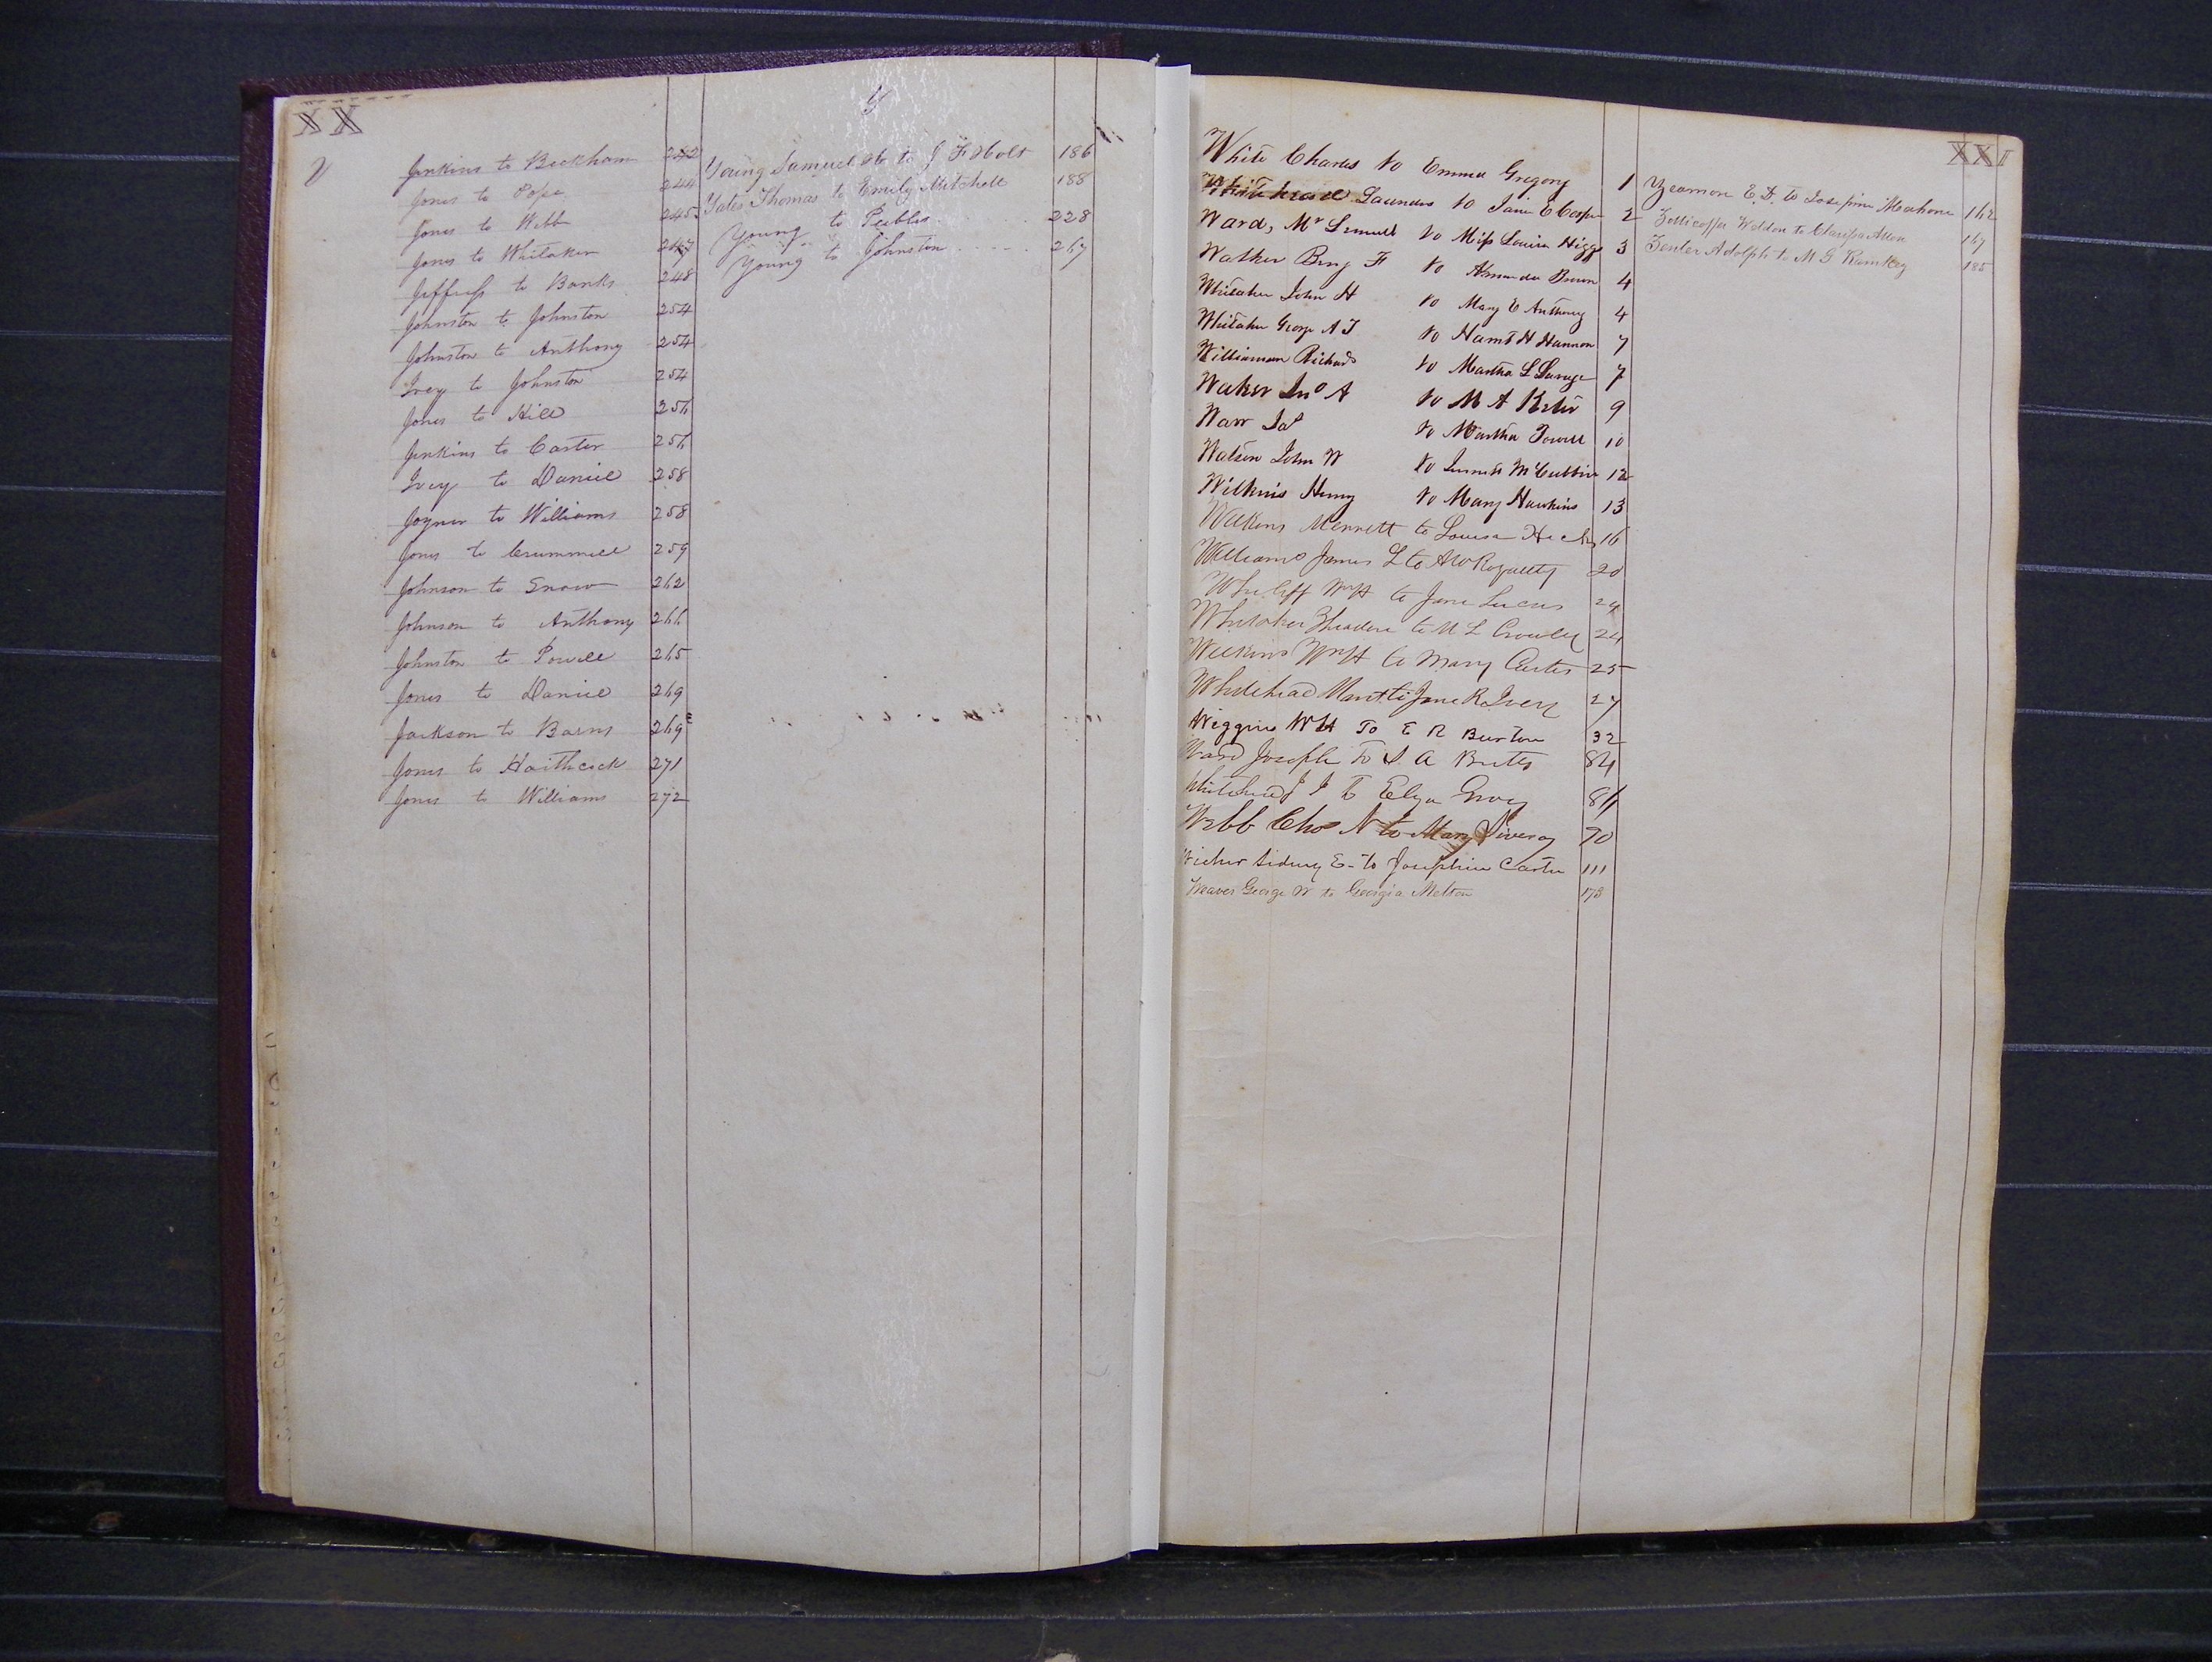 XX
Y
Jenkins to Beckham 242
Jones to Pope 244
Jones to Webb 245
Jones to Whitaker 247
Jeffress to Banks 248
Johnston to Johnston 254
Johnston to Anthony 254
Ivey to Johnston 254
Jones to Hill 256
Jenkins to Carter 256
Ivey to Daniel 258
Joyner to Williams 258
Jones to Crummell 259
Johnson to Snow 262
Johnson to Anthony 266
Johnston to Powell 265
Jones to Daniel 269
Jackson to Barns 269
Jones to Haithcock 271
Jones to Williams 272
Young Samuel to J F Holt 186
Yates Thomas to Emily Mitchell 188
Young to Peebles 228
Young to Johnston 267
XXI
White Charles to Emma Gregory 1
Whitehead Saunders to Janie E Cooper 2
Ward, Mr Lemuel to Miss Louisa Higgs 3
Walker Benj F to Amanda Brown 4
Whitaker John H to Mary E Anthony 4
Whitaker George A T to Harrt H Hannon 7
Williamson Richard to Martha L Savage 7
Waker Jno A to M A 9
Warr Jas to Martha Powell 10
Watson John W to McCubbin 12
Wilkins Henry to Mary Hawkins 13
Wilkins Mennett to Louisa 16
Williams James L to 20
Wm H to Jane Lucas 24
Whitaker to M L Crowley 24
Wilkins Wm H to Mary Carter 25
Whitehead to Jane R Ivey 27
Wiggins W H To E R Burton 32
Ward Joseph To S A Butts 84
Whitehead J J to Eliza Gray 86
Webb Chas N to Mary 90
Sidney E. to Josephine Carter 111
Weaver George W to Georgia Melton 178
Yeamon E. D. to Josepine Mahone 162
Zollicoffer Weldon to Clarissa Allen 167
Zenler Adolph to M G Ramkey 185